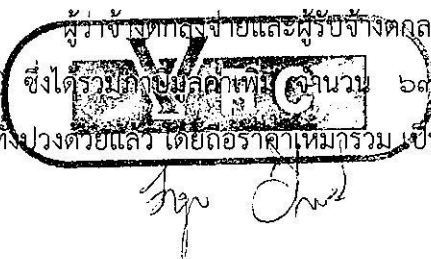 ผู้ว่าจ้างตกลงจ่ายและผู้รับจ้างตกล
ซึ่งได้รวมภาษีมูลค่าเพิ่ม จำนวน
ทั้งปวงด้วยแล้ว โดยถือราคาเหมารวม เป็